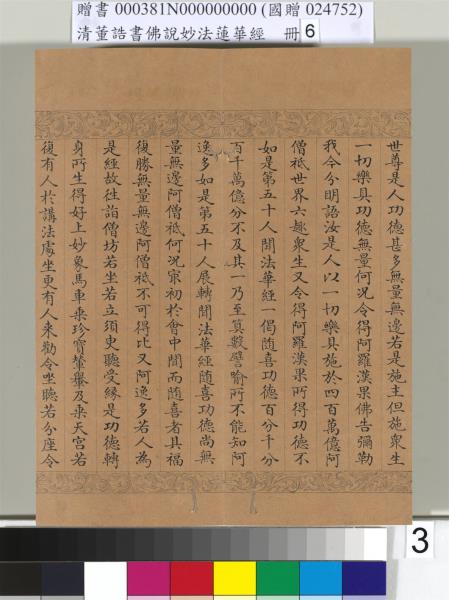 贈書 000381N000000000 (國贈 024752)
清董誥書佛說妙法蓮華經 冊 6
世尊是人功德甚多無量無邊若是施主但施衆生
一切樂具功德無量何況令得阿羅漢果佛告彌勒
我今分明語汝是人以一切樂具施於四百萬億阿
僧祇世界六趣衆生又令得阿羅漢果所得功德不
如是第五十人聞法華經一偈隨喜功德百分千分
百千萬億分不及其一乃至筭數譬喻所不能知阿
逸多如是第五十人展轉聞法華經隨喜功德尚無
量無邊阿僧祇何況冣初於會中聞而隨喜者其福
復勝無量無邊阿僧祇不可得比又阿逸多若人為
是經故往詣僧坊若坐若立須臾聽受緣是功德轉
身所生得好上妙象馬車乘珍寶輦輿及乘天宮若
復有人於講法處坐更有人来勸令坐聽若分座令
3